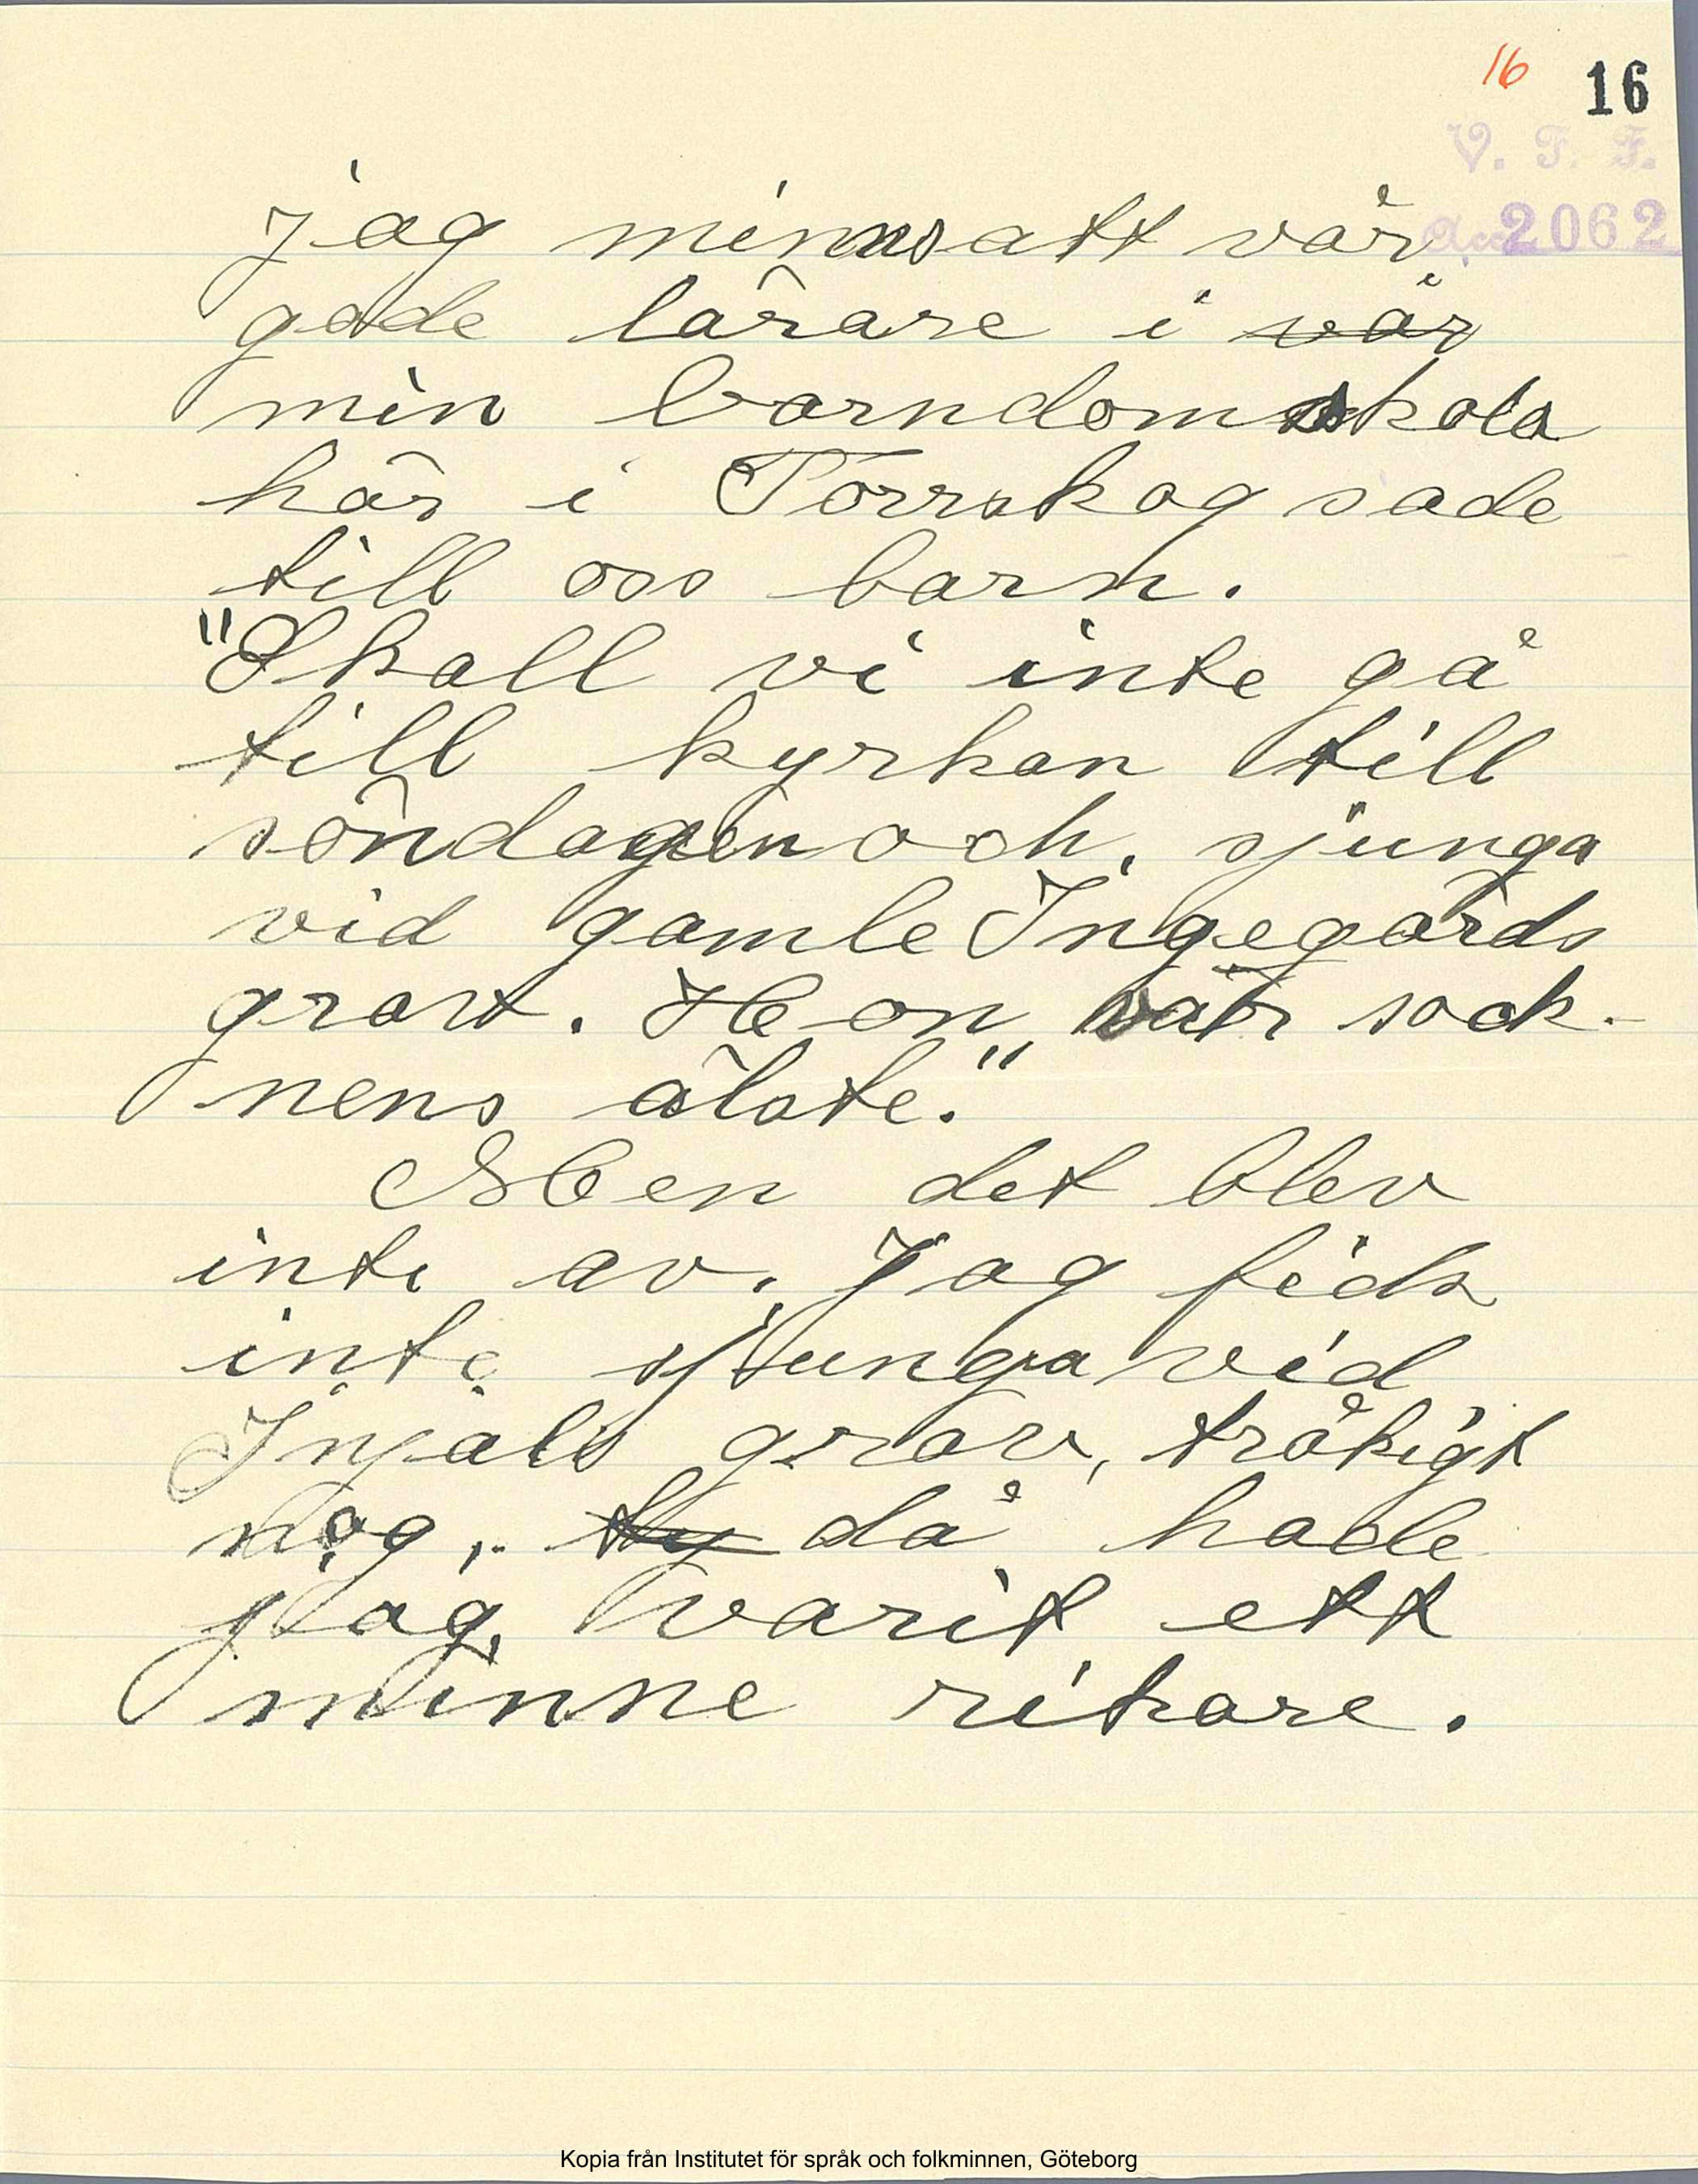 16 16
V. F. F.
Acc. 2062
jag minns att vår
gode lärare i vår
min barndomskola
här i Torrskog sade
till oss barn.
"Skall vi inte gå
till kyrkan till
söndagen och sjunga
vid gamle Ingegärds
grav. Hon var sock-
nens älste."
Men det blev
inte av. Jag fick
inte sjunga vid
grav, tråkigt
nog, ty då hade
jag varit ett
minne rikare.
Kopia från Institutet för språk och folkminnen, Göteborg